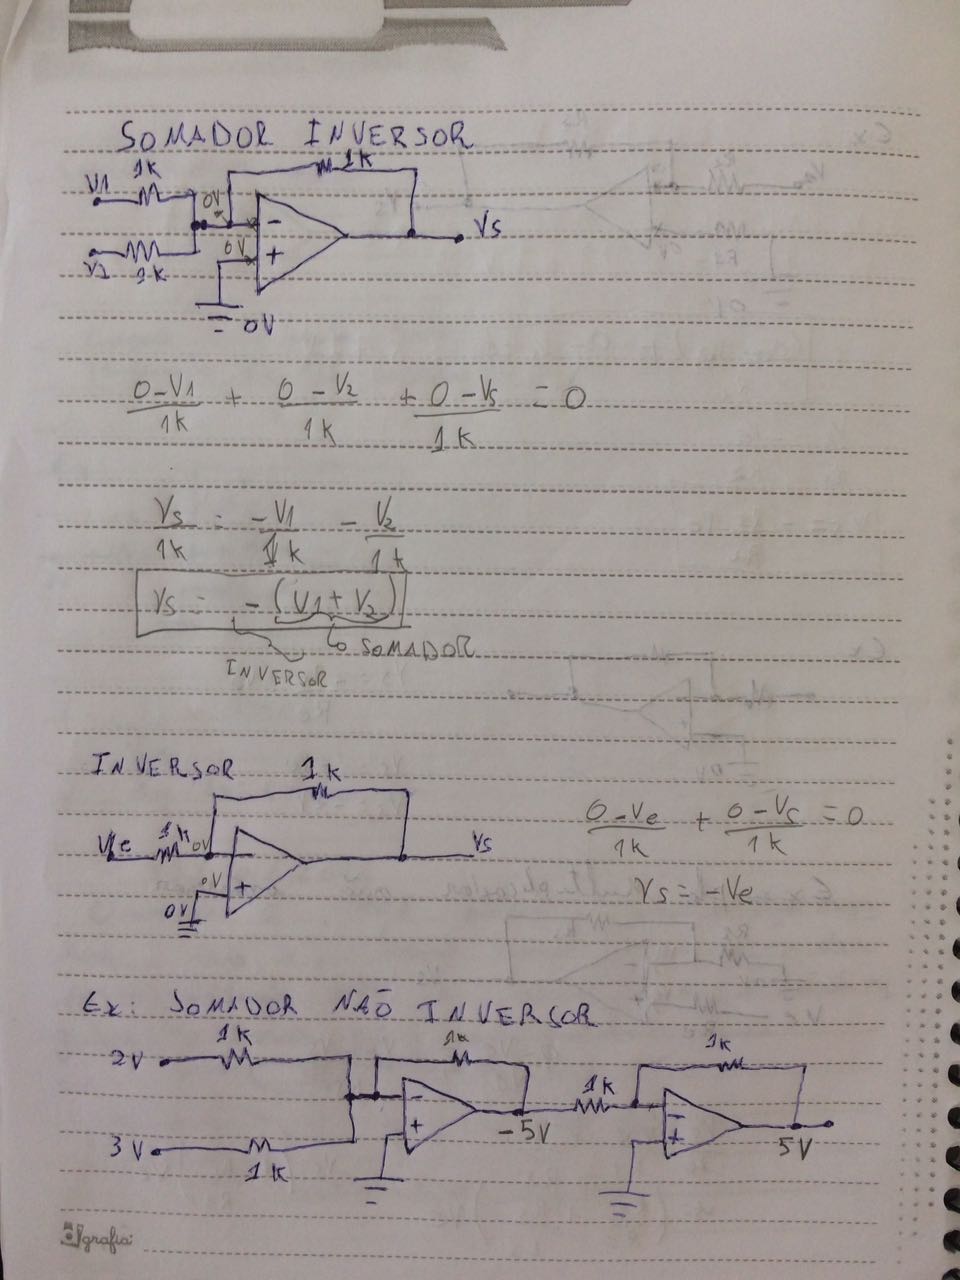 SOMADOR INVERSOR
1k 1k
V1
0V
- Vs
0V +
V2
1k
0V
0-V1/1k + 0-V2/1k + 0-Vs/1k = 0
Vs/1k = -V1/1k - V2/1k
Vs = -(V1+V2)
SOMADOR
INVERSOR
INVERSOR 1k
1k
Ve 0V - Vs
0V +
0V
0-Ve/1k + 0-Vs/1k = 0
Vs = -Ve
Ex: SOMADOR NÃO INVERSOR
1k 1k 1k
2V
1k
- -
+ -5V + 5V
3V
1k
grafia